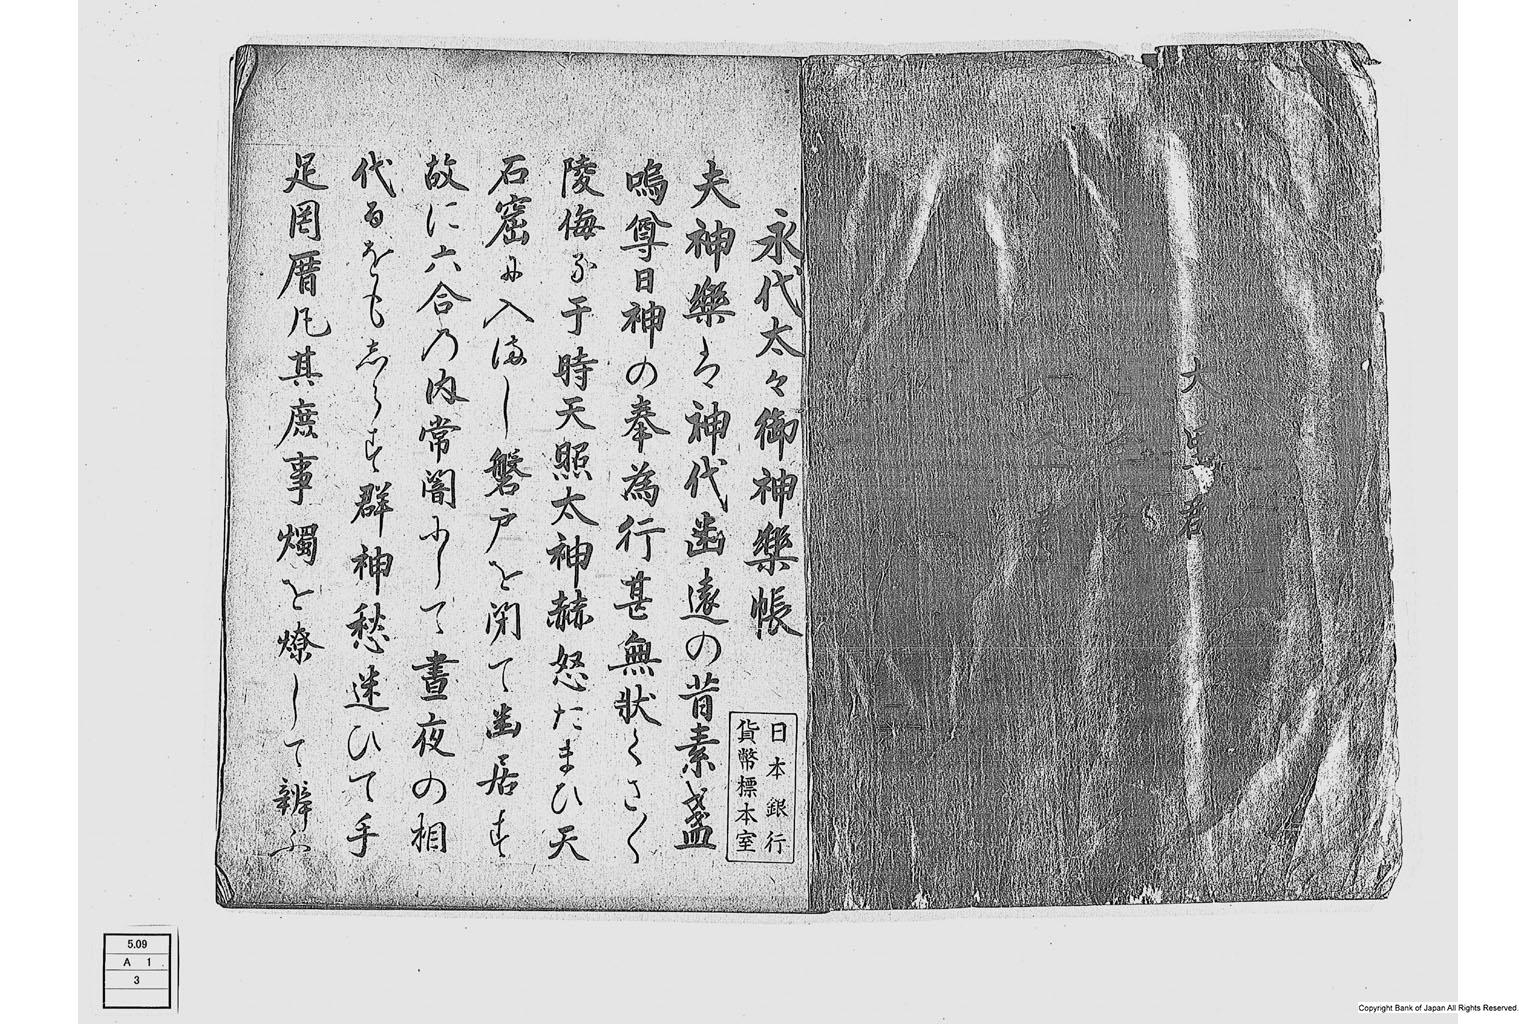 永代太々御神樂帳
夫神樂ハ神代幽遠の昔素戔
嗚尊日神の奉為行甚無状くさ〲
陵侮る于時天照太神赫怒たまひ天
石窟に入まし磐戸を閉て幽居す
故に六合乃内常闇にして晝夜の相
代るをもしらす群神愁迷ひて手
足罔厝凡其庶事燭を燎して辨ふ
日本銀行
貨幣標本室
5.09
A 1
3
Copyright Bank of Japan All Rights Reserved.